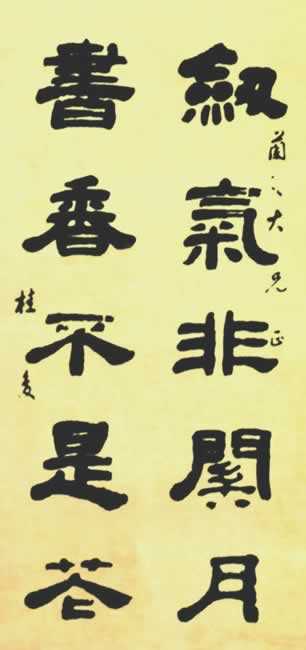 紉氣非關月
大兄 正
書香不是花
桂馥